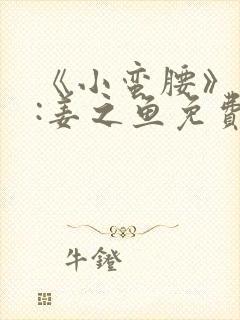 《小蛮腰》
:姜之鱼免費
牛鐙